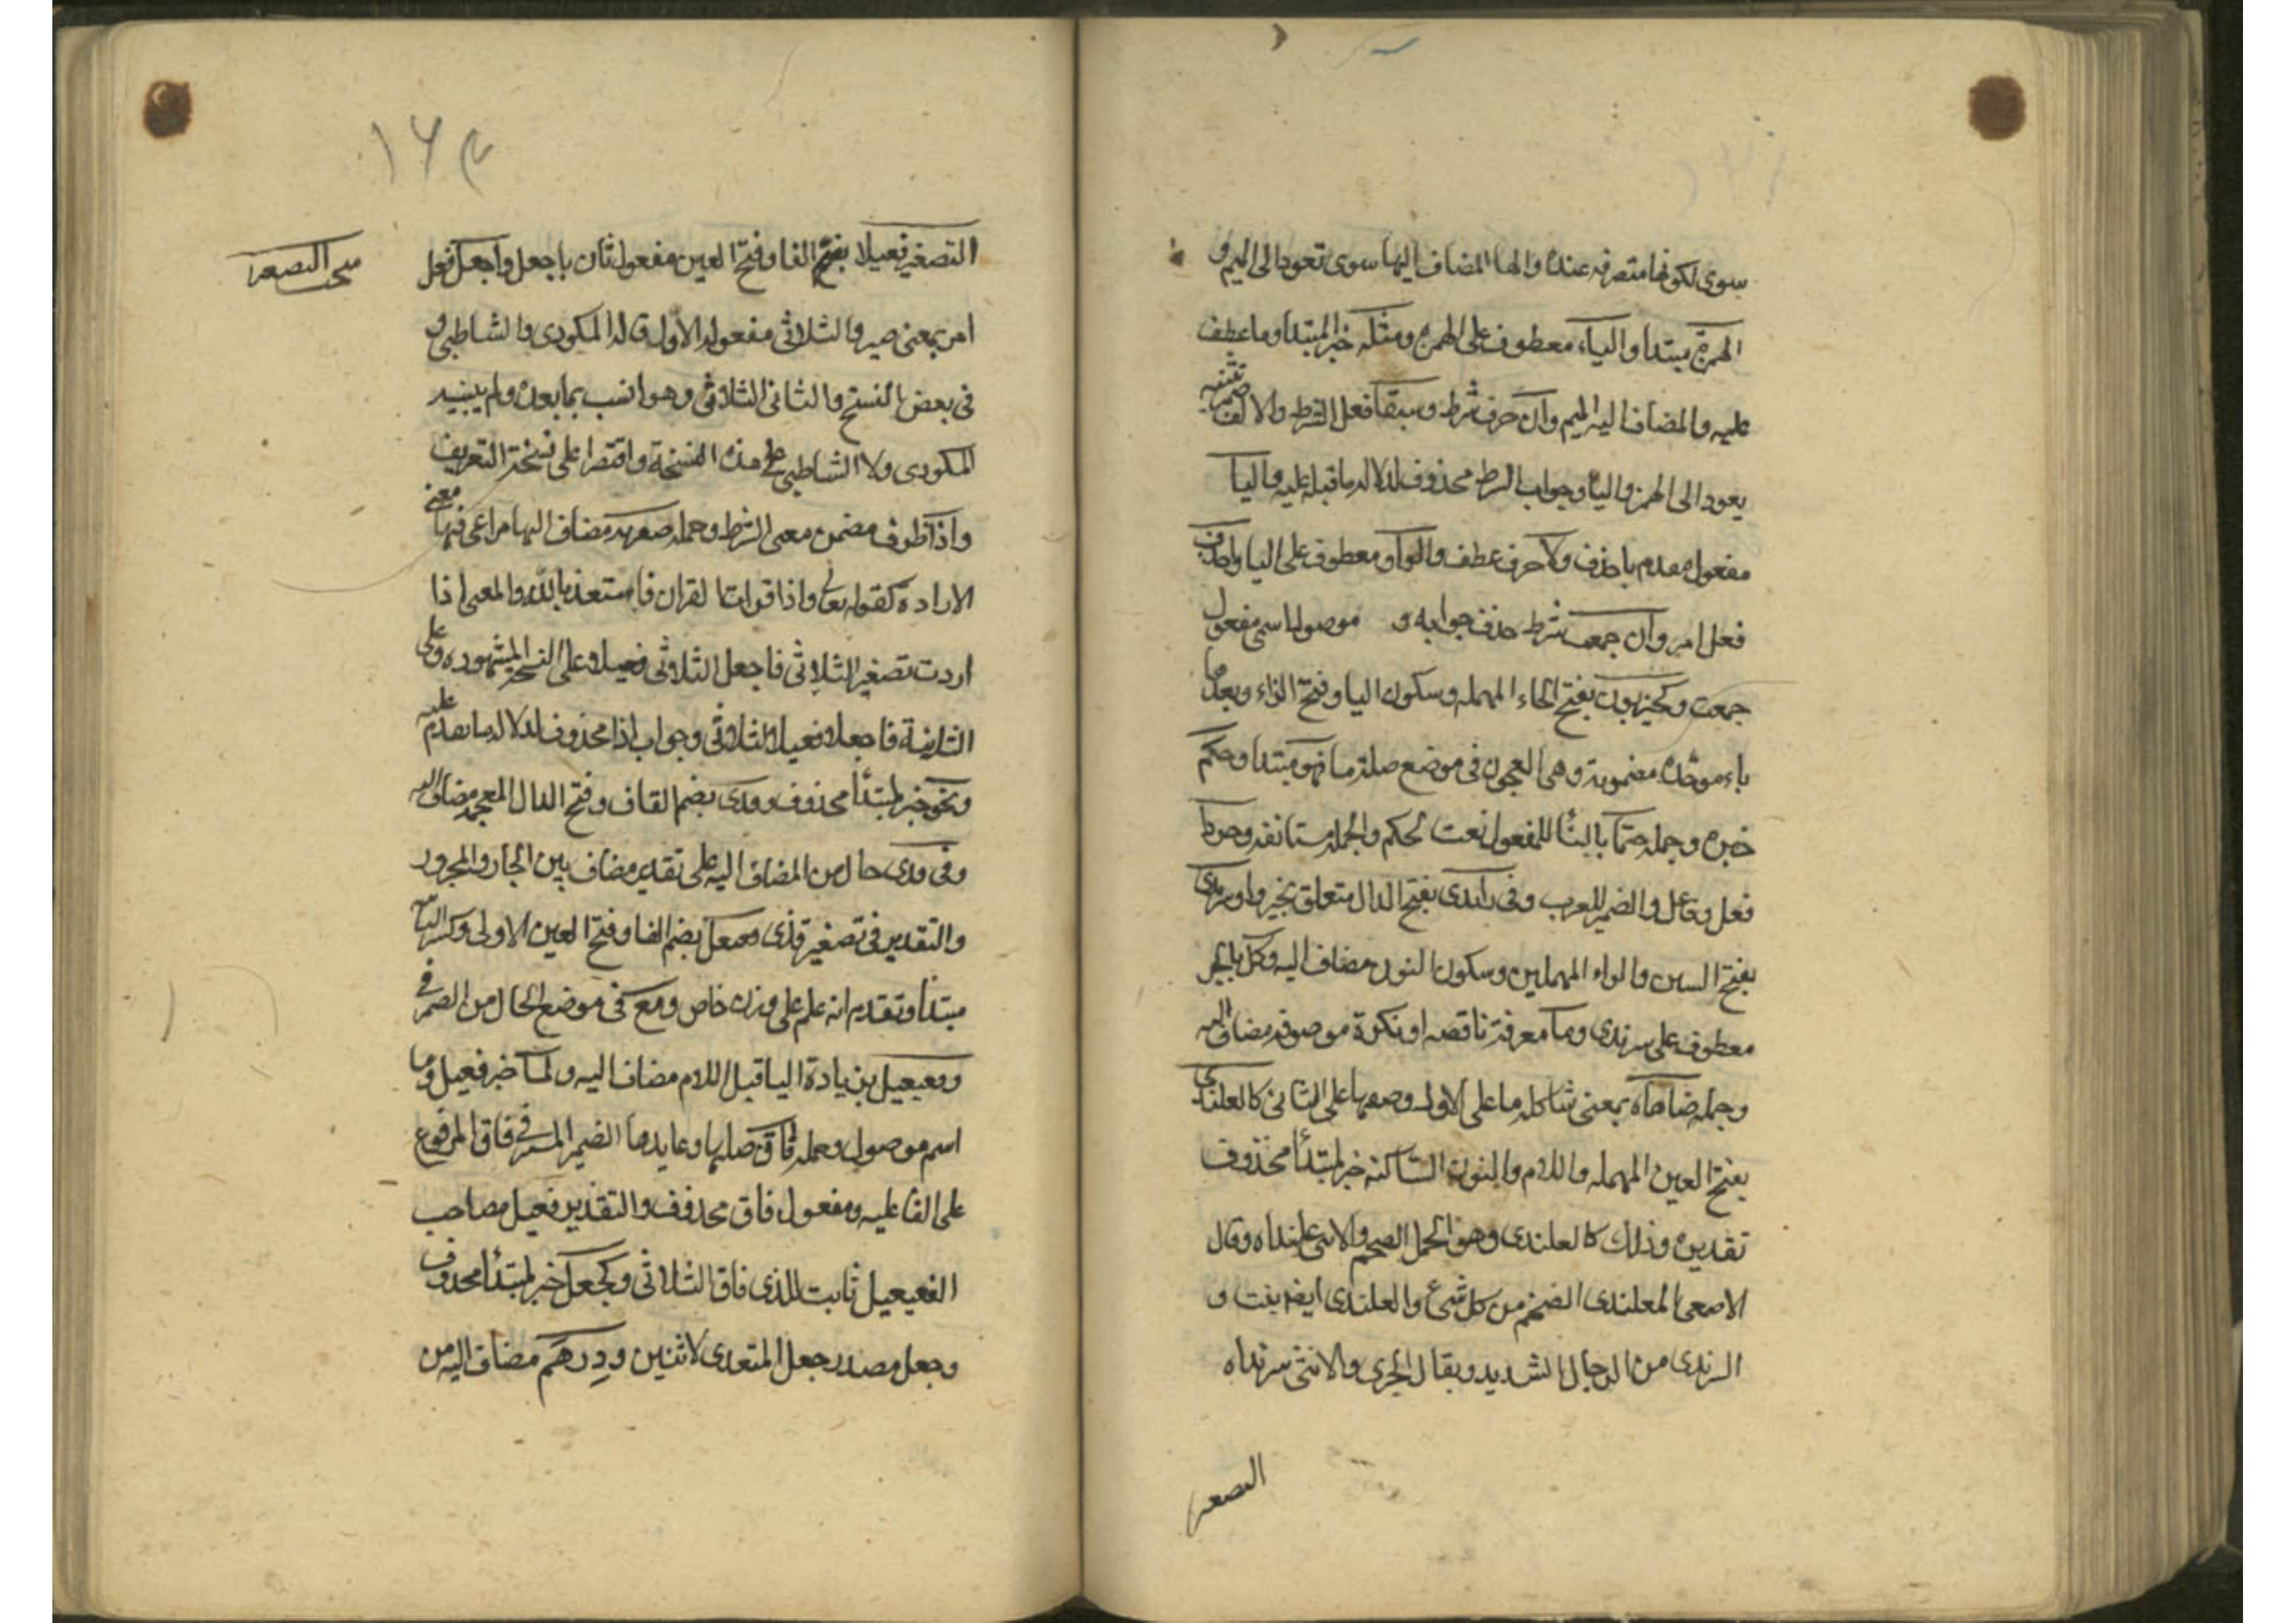 سوى لكونها متصرفه عنده والها المضاف اليها سوى تعود الى الميم و
الهمزة مبتدا والياء معطوف على الهمزه ومثله خبر المبتدا وما عطف
عليه والمضاف اليه الميم وان حرف شرط وسبقا فعل الشرط والالف ضمير تثنيه
يعود الى الهمز والياء وجواب الشرط محذوف لدلاله ما قبله عليه واليا
مفعول مقدم باحذف ولا حرف عطف والواو معطوف على اليا واحذف
فعل امر وان جمعت شرط حذف جوابه و موصول اسمي مفعول
جمعت وكحيزبون بفتح الحاء المهمله وسكون اليا وفتح الزاء وبعدها
باء موحده مضمومة وهى العجوز في موضع صلة ما فهو مبتدا وحكم
خبره وجمله حتما بالبناء للمفعول نعت لحكم والجمله مستانفه وخيروا
فعل وفاعل والضمير للعرب وفي زائدى بفتح الدال متعلق بخيروا وسرندى
بفتح السين والراء المهملين وسكون النون مضاف اليه وكل بالجر
معطوف على سرندى وما معرفة ناقصه او نكرة موصوفه مضاف اليه
وجمله ضاهاه بمعنى شاكله ما على الاول وصفها على الثانى كالعلندى
بفتح العين المهمله واللام والنون الساكنه خبر لمبتدأ محذوف
تقديره وذلك كالعلندى وهو الجمل الضخم والانثى علنداه وقال
الاصمعي المعلندى الضخم من كل شئ والعلندى ايضا نبت و
السرندى من الرجال الشديد ويقال الجرى والانثى سرنداه
التصغير
١٦٣
مبحث التصغير
التصغير فعيلا بفتح الفا وفتح العين مفعول ثان باجعل واجعل فعل
امر بمعنى صير والثلاثى مفعوله الاول قاله المكودى والشاطبى و
فى بعض النسخ والثانى الثلاثى وهو انسب بما بعده ولم ينبه
المكودى ولا الشاطبى على هذه النسخة واقتصرا على نسخة التعريف
واذا ظرف مضمن معنى الشرط وجمله صغرته مضاف اليها مراعى فيها معنى
الارادة كقوله تعالى واذا قرات القران فاستعذ بالله والمعنى اذا
اردت تصغير الثلاثى فاجعل الثلاثى فعيلا على النسخة المشهوره وعلى
الثانية فاجعل فعيلا الثلاثى وجواب اذا محذوف لدلاله ما تقدم عليه
ونحو خبر لمبتدأ محذوف وقذى بضم القاف وفتح الذال المعجمه مضاف اليه
وفى قذى حال من المضاف اليه على تقدير مضاف بين الجار والمجرور
والتقدير فى تصغير قذى وفعيعل بضم الفا وفتح العين الاولى وكسر الثانيه
مبتدأ وتقديم انه علم على وزن خاص ومع فى موضع الحال من الضمير في
وفعيعيل بزيادة اليا قبل اللام مضاف اليه ولما خبر فعيعل وما
اسم موصول وجمله فاق صلتها وعايدها الضمير المستتر في فاق المرفوع
على الفاعليه ومفعول فاق محذوف والتقدير فعيعل مصاحب
الفعيعيل ثابت للذى فاق الثلاثى وكجعل خبر لمبتدأ محذوف
وجعل مصدر جعل المتعدى لاثنين ودرهم مضاف اليه من